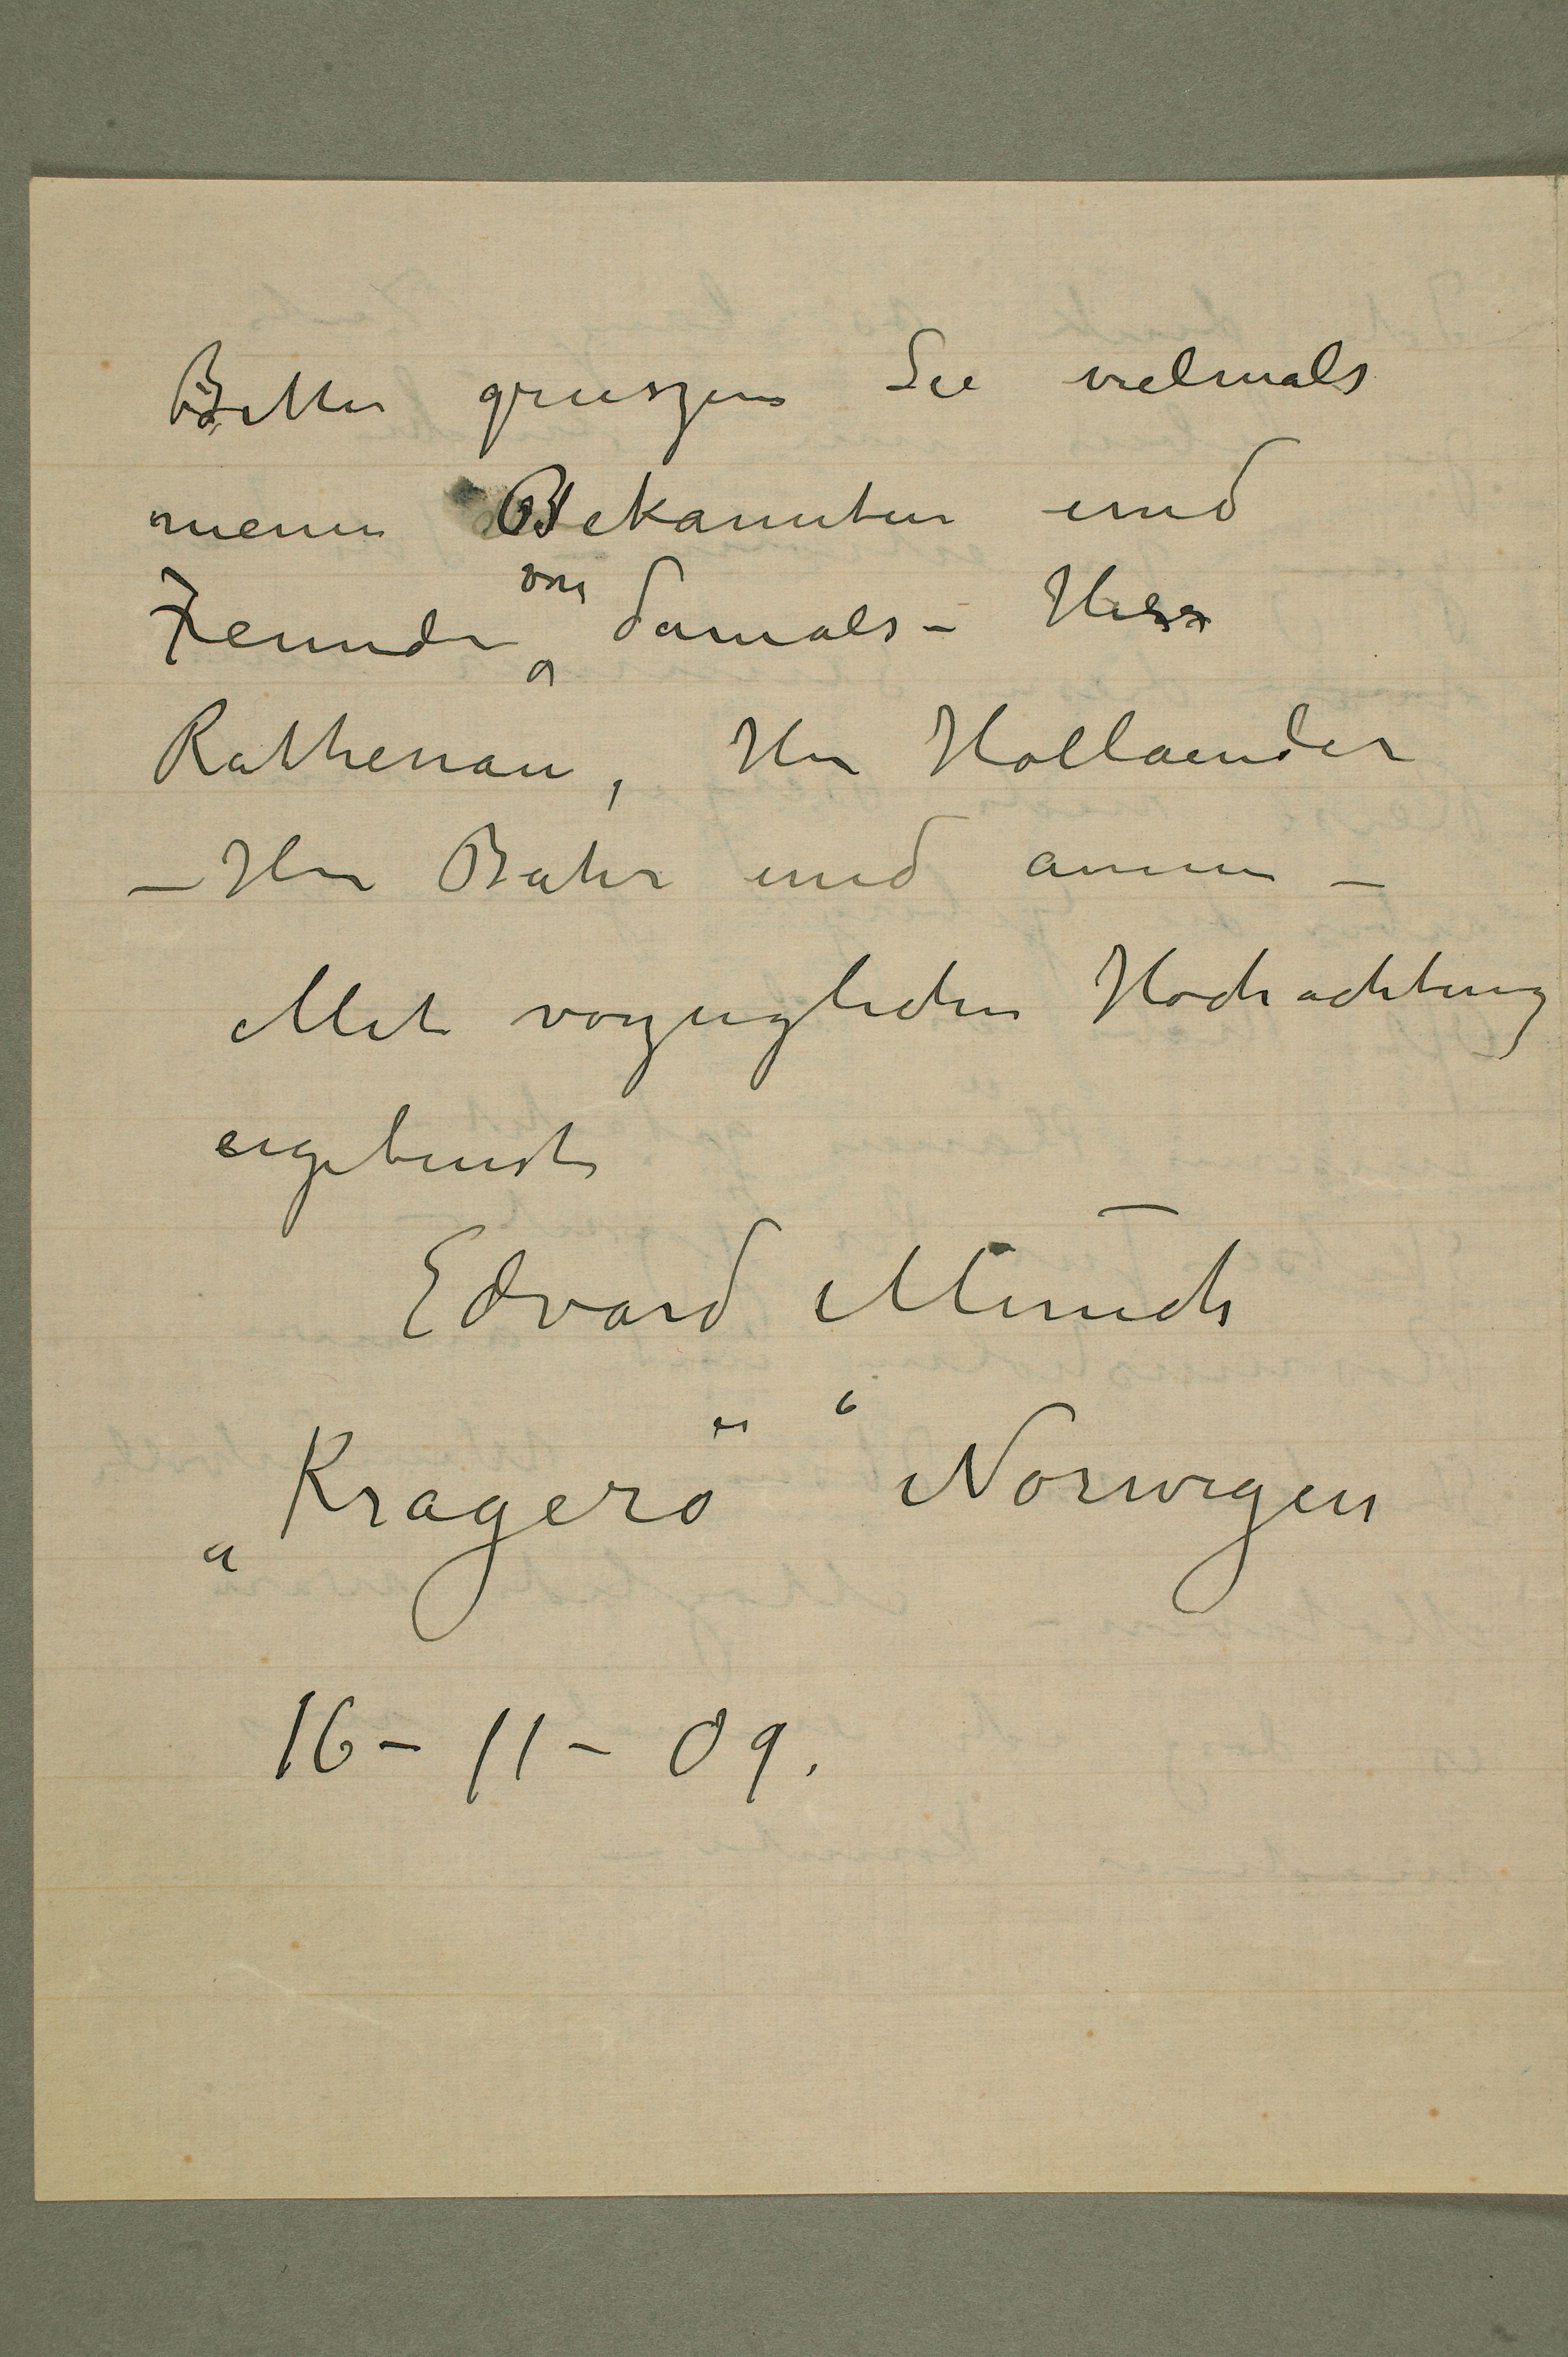 Bitte grueszen Sie vielmals
meine Bekannten und
Freunde von damals – Herr
Rathenau, Hr Hollaender
– Hr Bahr und
Mit vorzuglicher Hochachtung
ergebenst
Edvard Munch
„Kragerö“ Norwegen
16 – 11 – 09.